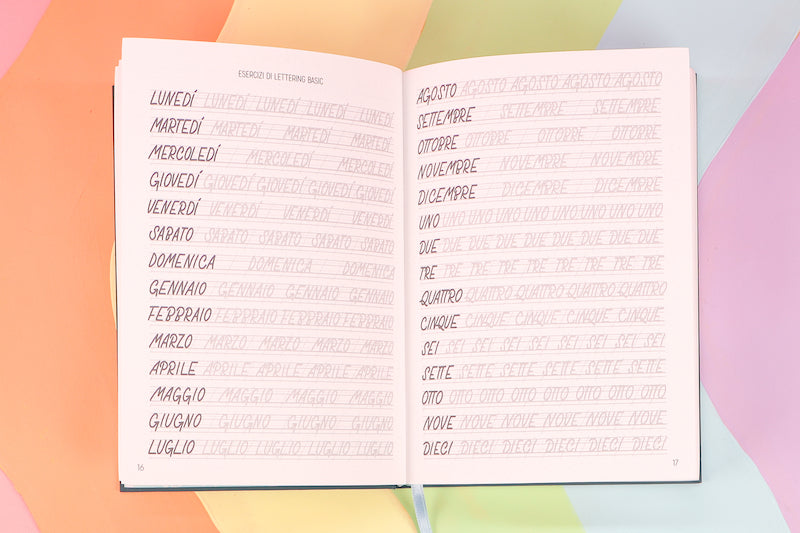 ESERCIZI DI LETTERING BASIC
LUNEDÍ LUNEDÍ LUNEDÍ LUNEDÍ LUNEDÍ
MARTEDÍ MARTEDÍ MARTEDÍ MARTEDÍ
MERCOLEDÍ MERCOLEDÍ MERCOLEDÍ
GIOVEDÍ GIOVEDÍ GIOVEDÍ GIOVEDÍ GIOVEDÍ
VENERDÍ VENERDÍ VENERDÍ VENERDÍ
SABATO SABATO SABATO SABATO SABATO
DOMENICA DOMENICA DOMENICA
GENNAIO GENNAIO GENNAIO GENNAIO
FEBBRAIO FEBBRAIO FEBBRAIO FEBBRAIO
MARZO MARZO MARZO MARZO MARZO
APRILE APRILE APRILE APRILE APRILE
MAGGIO MAGGIO MAGGIO MAGGIO
GIUGNO GIUGNO GIUGNO GIUGNO
LUGLIO LUGLIO LUGLIO LUGLIO LUGLIO
16
AGOSTO AGOSTO AGOSTO AGOSTO AGOSTO
SETTEMBRE SETTEMBRE SETTEMBRE
OTTOBRE OTTOBRE OTTOBRE OTTOBRE
NOVEMBRE NOVEMBRE NOVEMBRE
DICEMBRE DICEMBRE DICEMBRE
UNO UNO UNO UNO UNO UNO UNO UNO UNO
DUE DUE DUE DUE DUE DUE DUE DUE DUE
TRE TRE TRE TRE TRE TRE TRE TRE TRE
QUATTRO QUATTRO QUATTRO QUATTRO QUATTRO
CINQUE CINQUE CINQUE CINQUE CINQUE
SEI SEI SEI SEI SEI SEI SEI SEI SEI
SETTE SETTE SETTE SETTE SETTE SETTE
OTTO OTTO OTTO OTTO OTTO OTTO OTTO OTTO
NOVE NOVE NOVE NOVE NOVE NOVE
DIECI DIECI DIECI DIECI DIECI
17